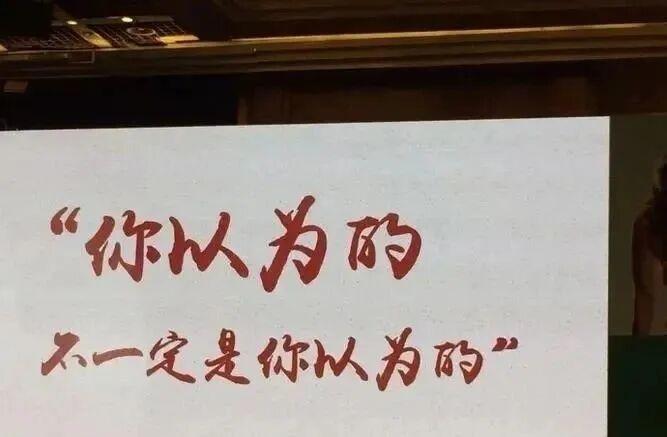 “你以为的
不一定是你以为的”